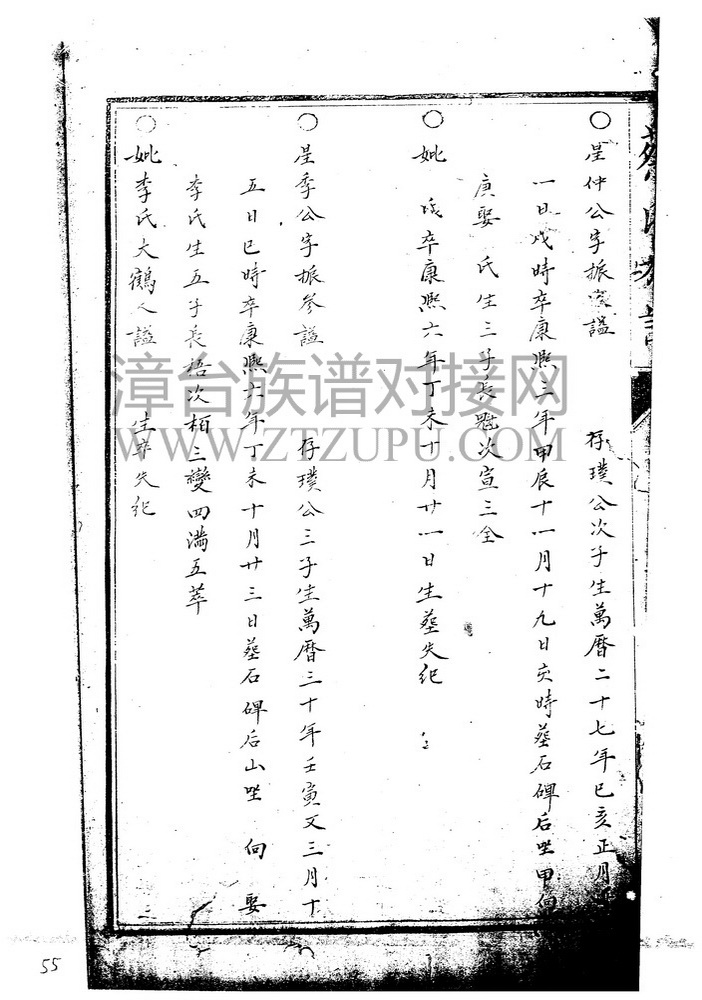 蔡氏族譜
○ 星仲公字振 謚 存璞公次子生萬曆二十七年己亥正月
一日戌時卒康熙三年甲辰十一月十九日亥時墓石碑后坐甲向
庚娶 氏生三子長 次宣三全
○ 妣 卒康熙六年丁未十月廿一日生墓失紀
○ 星季公字振參謚 存璞公三子生萬曆三十年壬寅又三月十
五日巳時卒康熙六年丁未十月廿三日墓石碑后山坐 向 娶
李氏生五子長梧次栢三變四滿五萃
○ 妣李氏大鶴人謚 生卒失紀
漳台族谱对接网
WWW.ZTZUPU.COM
55